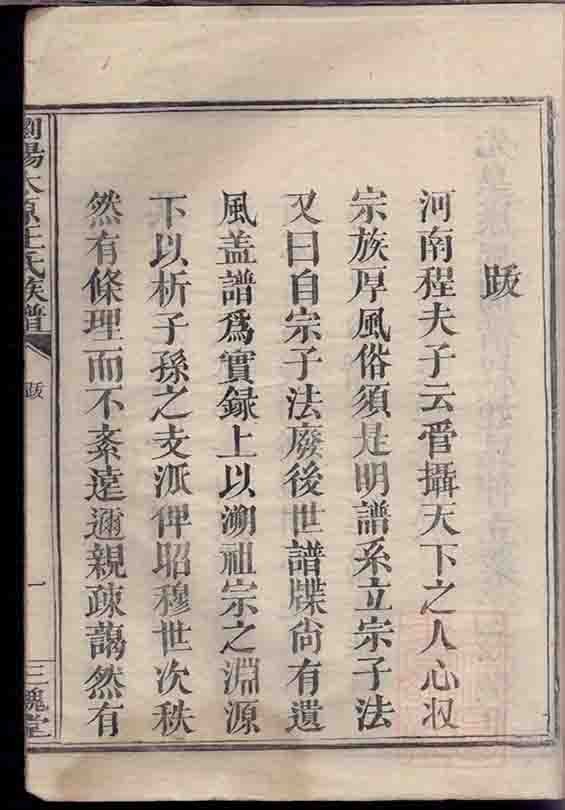 跋
河南程夫子云管攝天下之人心收
宗族厚風俗須是明譜系立宗子法
又曰自宗子法廢後世譜牒尙有遺
風盖譜爲實録上以溯祖宗之淵源
下以析子孫之支派俾昭穆世次秩
然有條理而不紊遠邇親疎藹然有
瀏陽太原王氏族譜
跋
一
三槐堂